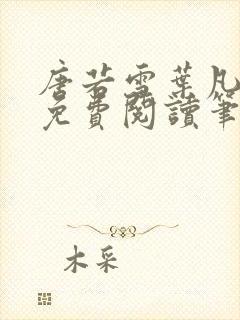 唐若雪葉凡
免費閱讀筆
木采